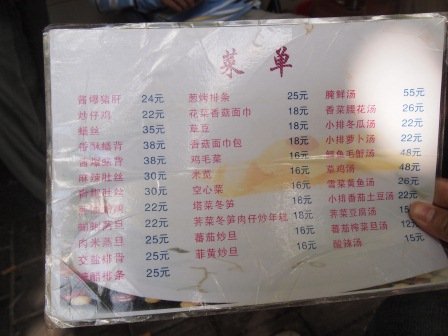 菜单
酱爆猪肝 24元
炒仔鸡 22元
鳝丝 35元
椒酥鳝背 38元
酱爆鳝背 38元
麻辣肚丝 30元
肚丝 30元
22元
22元
肉米蒸旦 25元
交盐排骨 25元
糖醋排条 25元
葱烤排条 25元
花菜香菇面巾 18元
草豆 18元
香菇面巾包 18元
鸡毛菜 16元
米苋 16元
空心菜 16元
塔菜冬笋 18元
荠菜冬笋肉仔炒年糕 18元
蕃茄炒旦 16元
韭黄炒旦 16元
腌鲜汤 55元
香菜腰花汤 26元
小排冬瓜汤 22元
小排萝卜汤 22元
鲫鱼毛蟹汤 48元
草鸡汤 48元
雪菜黄鱼汤 26元
小排番茄土豆汤 22元
荠菜豆腐汤 15元
蕃茄榨菜旦汤 12元
酸辣汤 15元